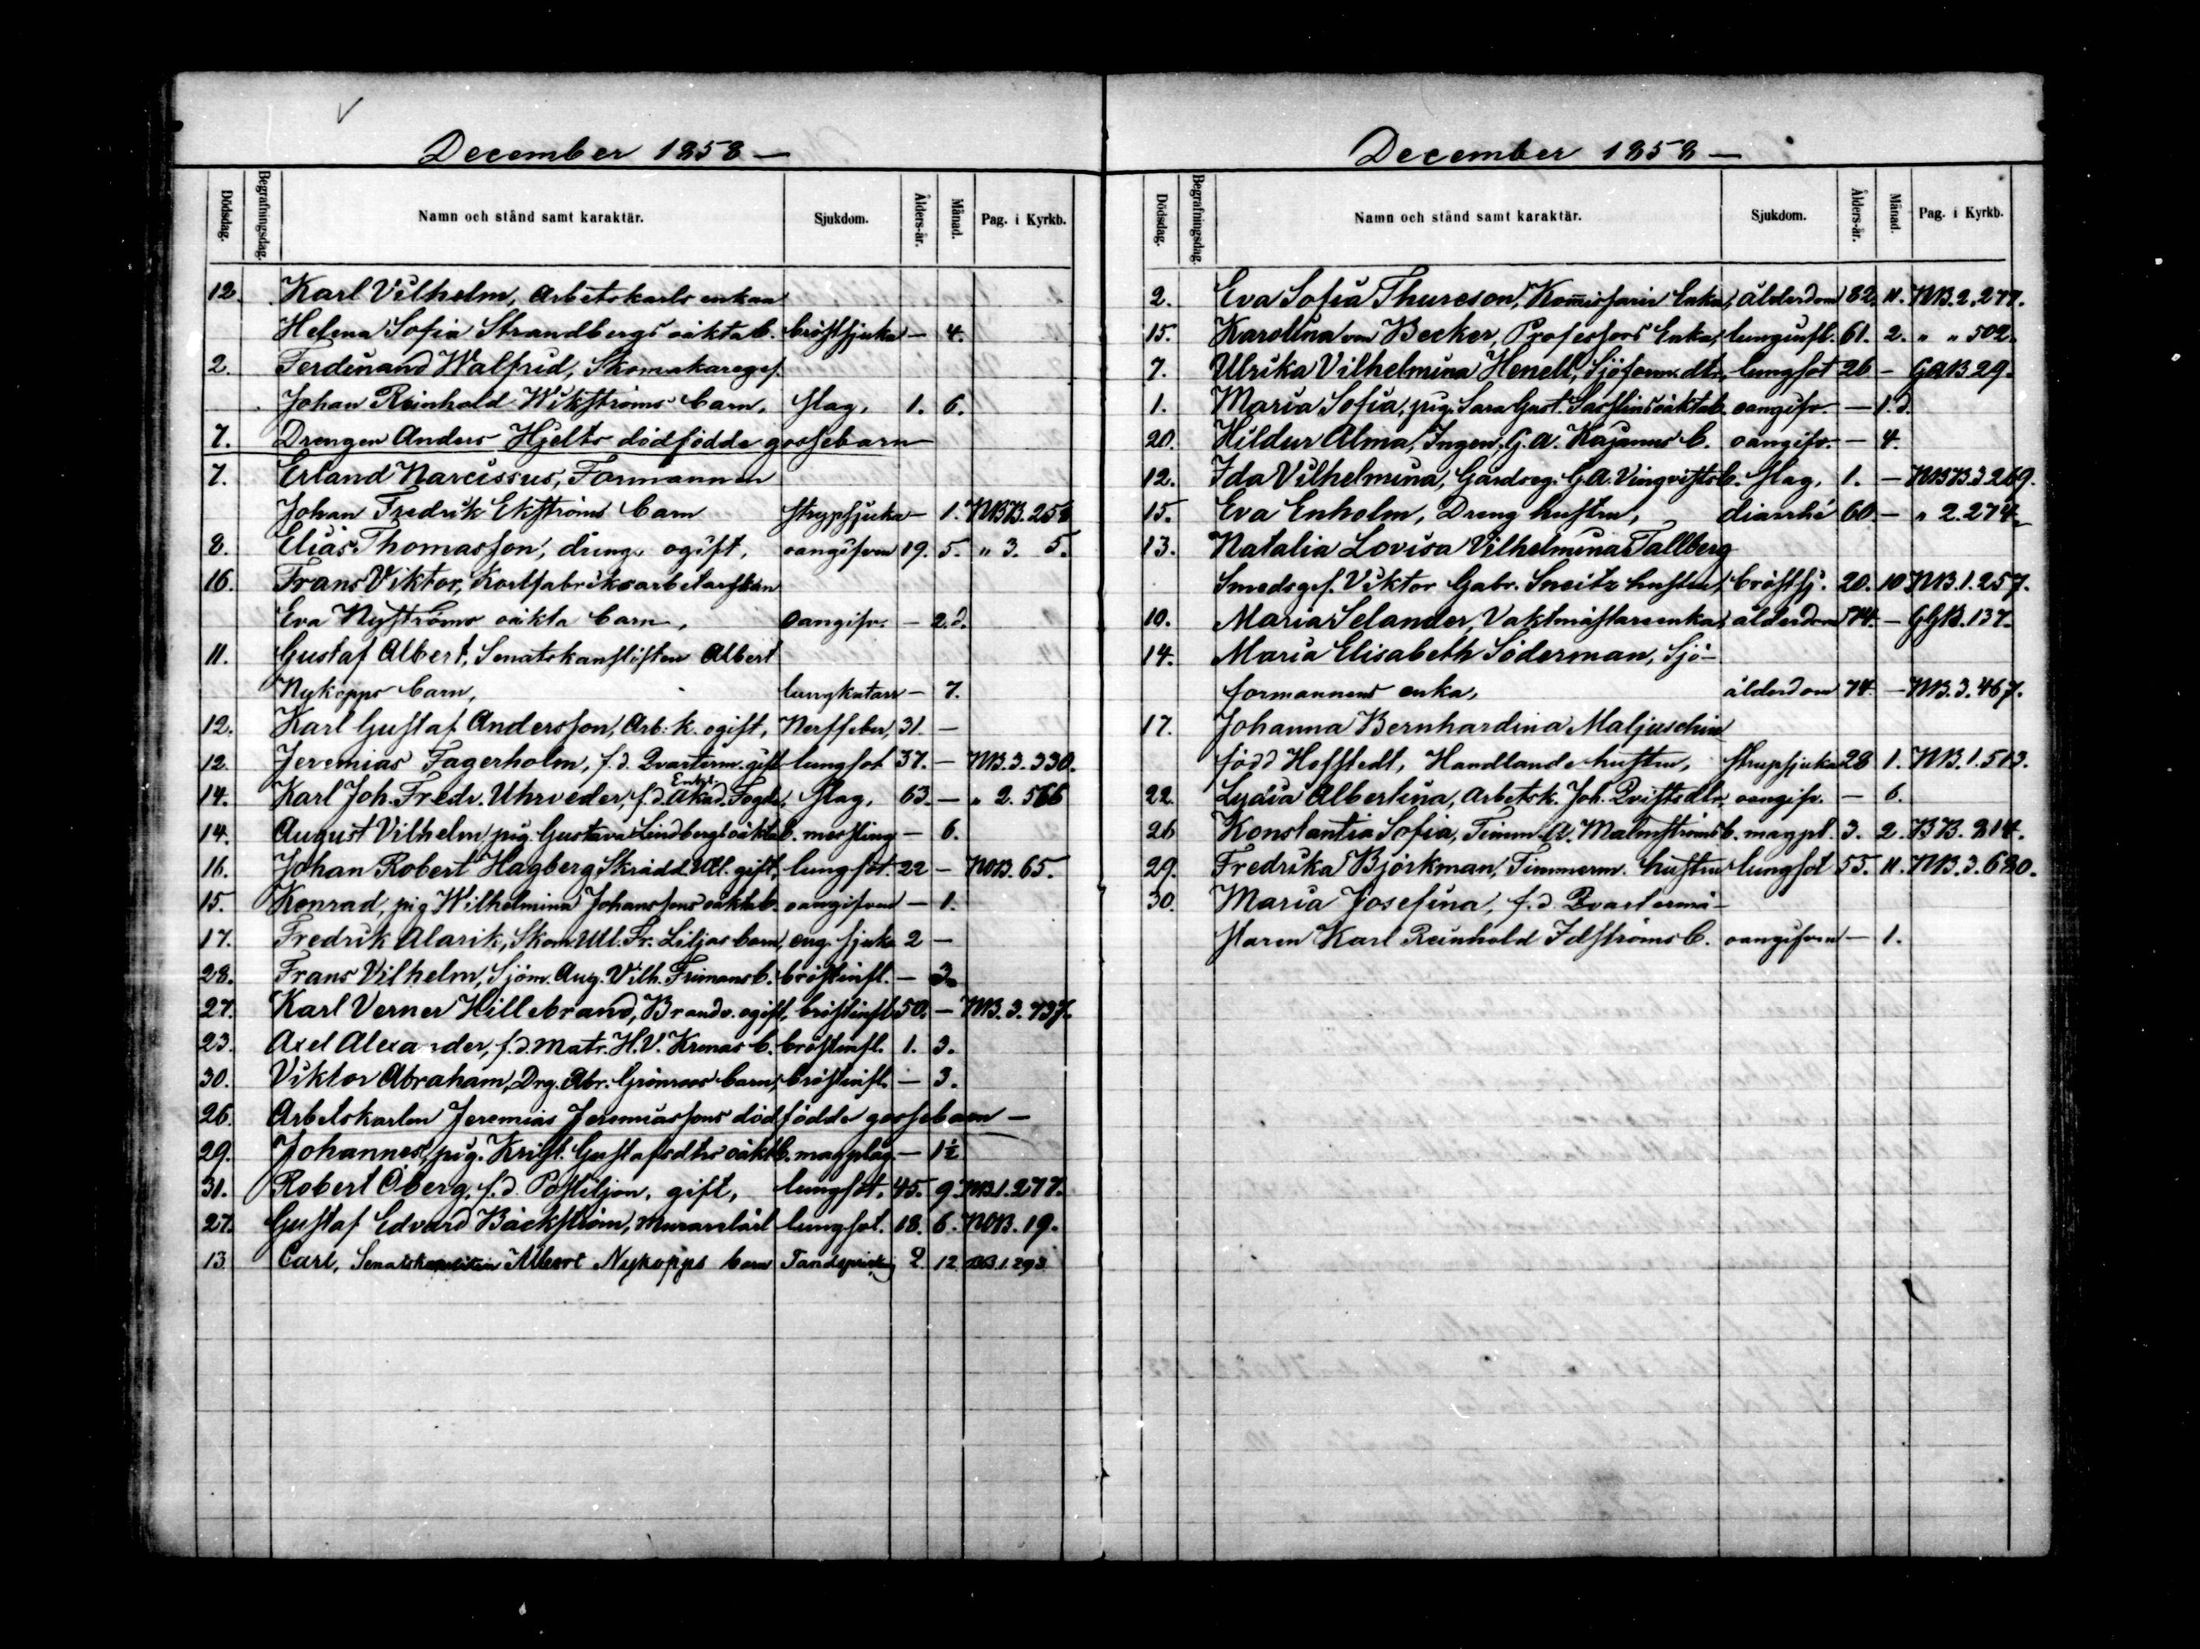 December 1858 —
Dödsdag. Begrafningsdag. Namn och stånd samt karaktär. Sjukdom. Ålders-år. Månad. Pag. i Kyrkb.
12. Karl Vilhelm, Arbetskarls enkan
Helena Sofia Strandbergs oäkta b. bröstsjuka — 4.
2. Ferdinand Walfrid, Skomakareges.
Johan Reinhold Wikströms barn, slag, 1. 6.
7. Drengen Anders Hjelts dödfödde gossebarn
7. Erland Narcissus, Formannen
Johan Fredrik Ekströms barn strypsjuka — 1. NBB. 258
8. Elias Thomasson, dreng, ogift, oangifven 19. 5. " 3. 5.
16. Frans Viktor, Kortfabriksarbeterskan
Eva Nyströms oäkta barn, oangifv. — 2. d.
11. Gustaf Albert, Senatskanslisten Albert
Nykopps barn, lungkatarr — 7.
12. Karl Gustaf Andersson, Arb. k. ogift, Nerffeber, 31. —
12. Jeremias Fagerholm, f. d. Qvarterm. gift lungsot 37. — NB. 3. 330.
14. Karl Joh. Fredr. Uhrveder, f. d. Akad. Fogde, Enkl. slag, 63. — " 2. 566
14. August Vilhelm, pig. Gustava Lindbergs oäkta b. messling — 6.
16. Johan Robert Hagberg, Skrädd. gift, lungsot. 22 — NOB. 65.
15. Konrad, pig. Wilhelmina Johanssons oäkta b. oangifven — 1.
17. Fredrik Alarik, Skom. Fr. Liljas barn, eng. sjuka 2 —
28. Frans Vilhelm, Sjöm. Aug. Vilh. Frimans b. bröstinfl. — 3.
27. Karl Verner Hillebrand, Brandv. ogift, bröstinfl. 50. — NB. 3. 737.
23. Axel Alexander, f. d. Matr. H. V. Krenas b. bröstinfl. 1. 3.
30. Viktor Abraham, Drg. Abr. Grönroos barn, bröstinfl. — 3.
26. Arbetskarlen Jeremias Jeremiassons dödfödde gossebarn —
29. Johannes, pig. Krist. Gustafsdtrs oäkt b. magplåg. — 1½
31. Robert Öberg, f. d. Postiljon, gift, lungsot, 45. 9. NB. 1. 277.
27. Gustaf Edvard Bäckström, murarelärl. lungsot. 18. 6. NOB. 19.
13. Carl, Senatskanslisten Albert Nykopps barn Tandspricknig 2 12 1. 293
December 1858 —
Dödsdag. Begrafningsdag. Namn och stånd samt karaktär. Sjukdom. Ålders-år. Månad. Pag. i Kyrkb.
2. Eva Sofia Thureson, Komissarie Enka, ålderdom 82. 11. NB. 2. 277.
15. Karolina von Becker, Professors Enka, lunginfl. 61. 2. " " 502.
7. Ulrika Vilhelmina Henell, Sjöform. dtr, lungsot 26 — GAB. 29.
1. Maria Sofia, pig. Sara Gust. oäkta b. oangifv. — 1. d.
20. Hildur Alma, Ingen. G. A. Kajanus b. oangifv. — 4.
12. Ida Vilhelmina, Gårdseg. G. A. Vinqvists b. slag, 1. — NBB. 3. 269.
15. Eva Enholm, Dreng hustru, diarrhé 60. — " 2. 274
13. Natalia Lovisa Vilhelmina Tallberg
Smedsges. Viktor Gabr. Smeitz hustru, bröstsj. 20. 10. NB. 1. 257.
10. Maria Selander, Vaktmästareenka, ålderdom 74. — GGB. 137.
14. Maria Elisabeth Söderman, Sjö-
formannens enka, ålderdom 74. — NB. 3. 467.
17. Johanna Bernhardina Maljuschin
född Hofstedt, Handlande hustru, strupsjuka 28 1. NB. 1. 513.
22. Lydia Albertina, Arbetsk. Joh. Qvists dtr, oangifv. — 6.
26 Konstantia Sofia, Timm. A. Malmströms b. magpl. 3. 2. BB. 214.
29. Fredrika Björkman, Timmerm. hustru lungsot 55. 11. NB. 3. 620.
30. Maria Josefina, f. d. Qvartermä-
staren Karl Reinhold Idströms b. oangifven — 1.